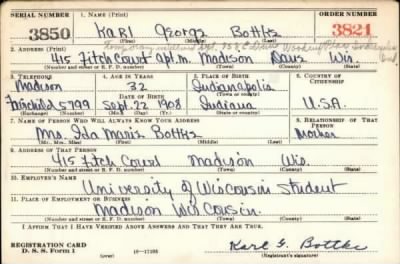 SERIAL NUMBER 1. NAME (Print) ORDER NUMBER
3850 Karl George Bottke 3821
(First) (Middle) (Last)
2. ADDRESS (Print)
415 Fitch Court Apt. M. Madison Dane Wis.
(Number and street or R. F. D. number) (Town) (County) (State)
3. TELEPHONE 4. AGE IN YEARS 5. PLACE OF BIRTH 6. COUNTRY OF CITIZENSHIP
Madison 32 Indianapolis
DATE OF BIRTH (Town or county)
Fairchild 5799 Sept. 22 1908 Indiana U.S.A.
(Exchange) (Number) (Mo.) (Day) (Yr.) (State or country)
7. NAME OF PERSON WHO WILL ALWAYS KNOW YOUR ADDRESS 8. RELATIONSHIP OF THAT PERSON
Mrs. Ida Marie Bottke Mother
(Mr., Mrs., Miss) (First) (Middle) (Last)
9. ADDRESS OF THAT PERSON
415 Fitch Court Madison Wis.
(Number and street or R. F. D. number) (Town) (County) (State)
10. EMPLOYER'S NAME
University of Wisconsin Student
11. PLACE OF EMPLOYMENT OR BUSINESS
Madison Wisconsin.
(Number and street or R. F. D. number) (Town) (County) (State)
I AFFIRM THAT I HAVE VERIFIED ABOVE ANSWERS AND THAT THEY ARE TRUE.
REGISTRATION CARD
D. S. S. FORM 1 (over) Karl G. Bottke
(Registrant's signature)